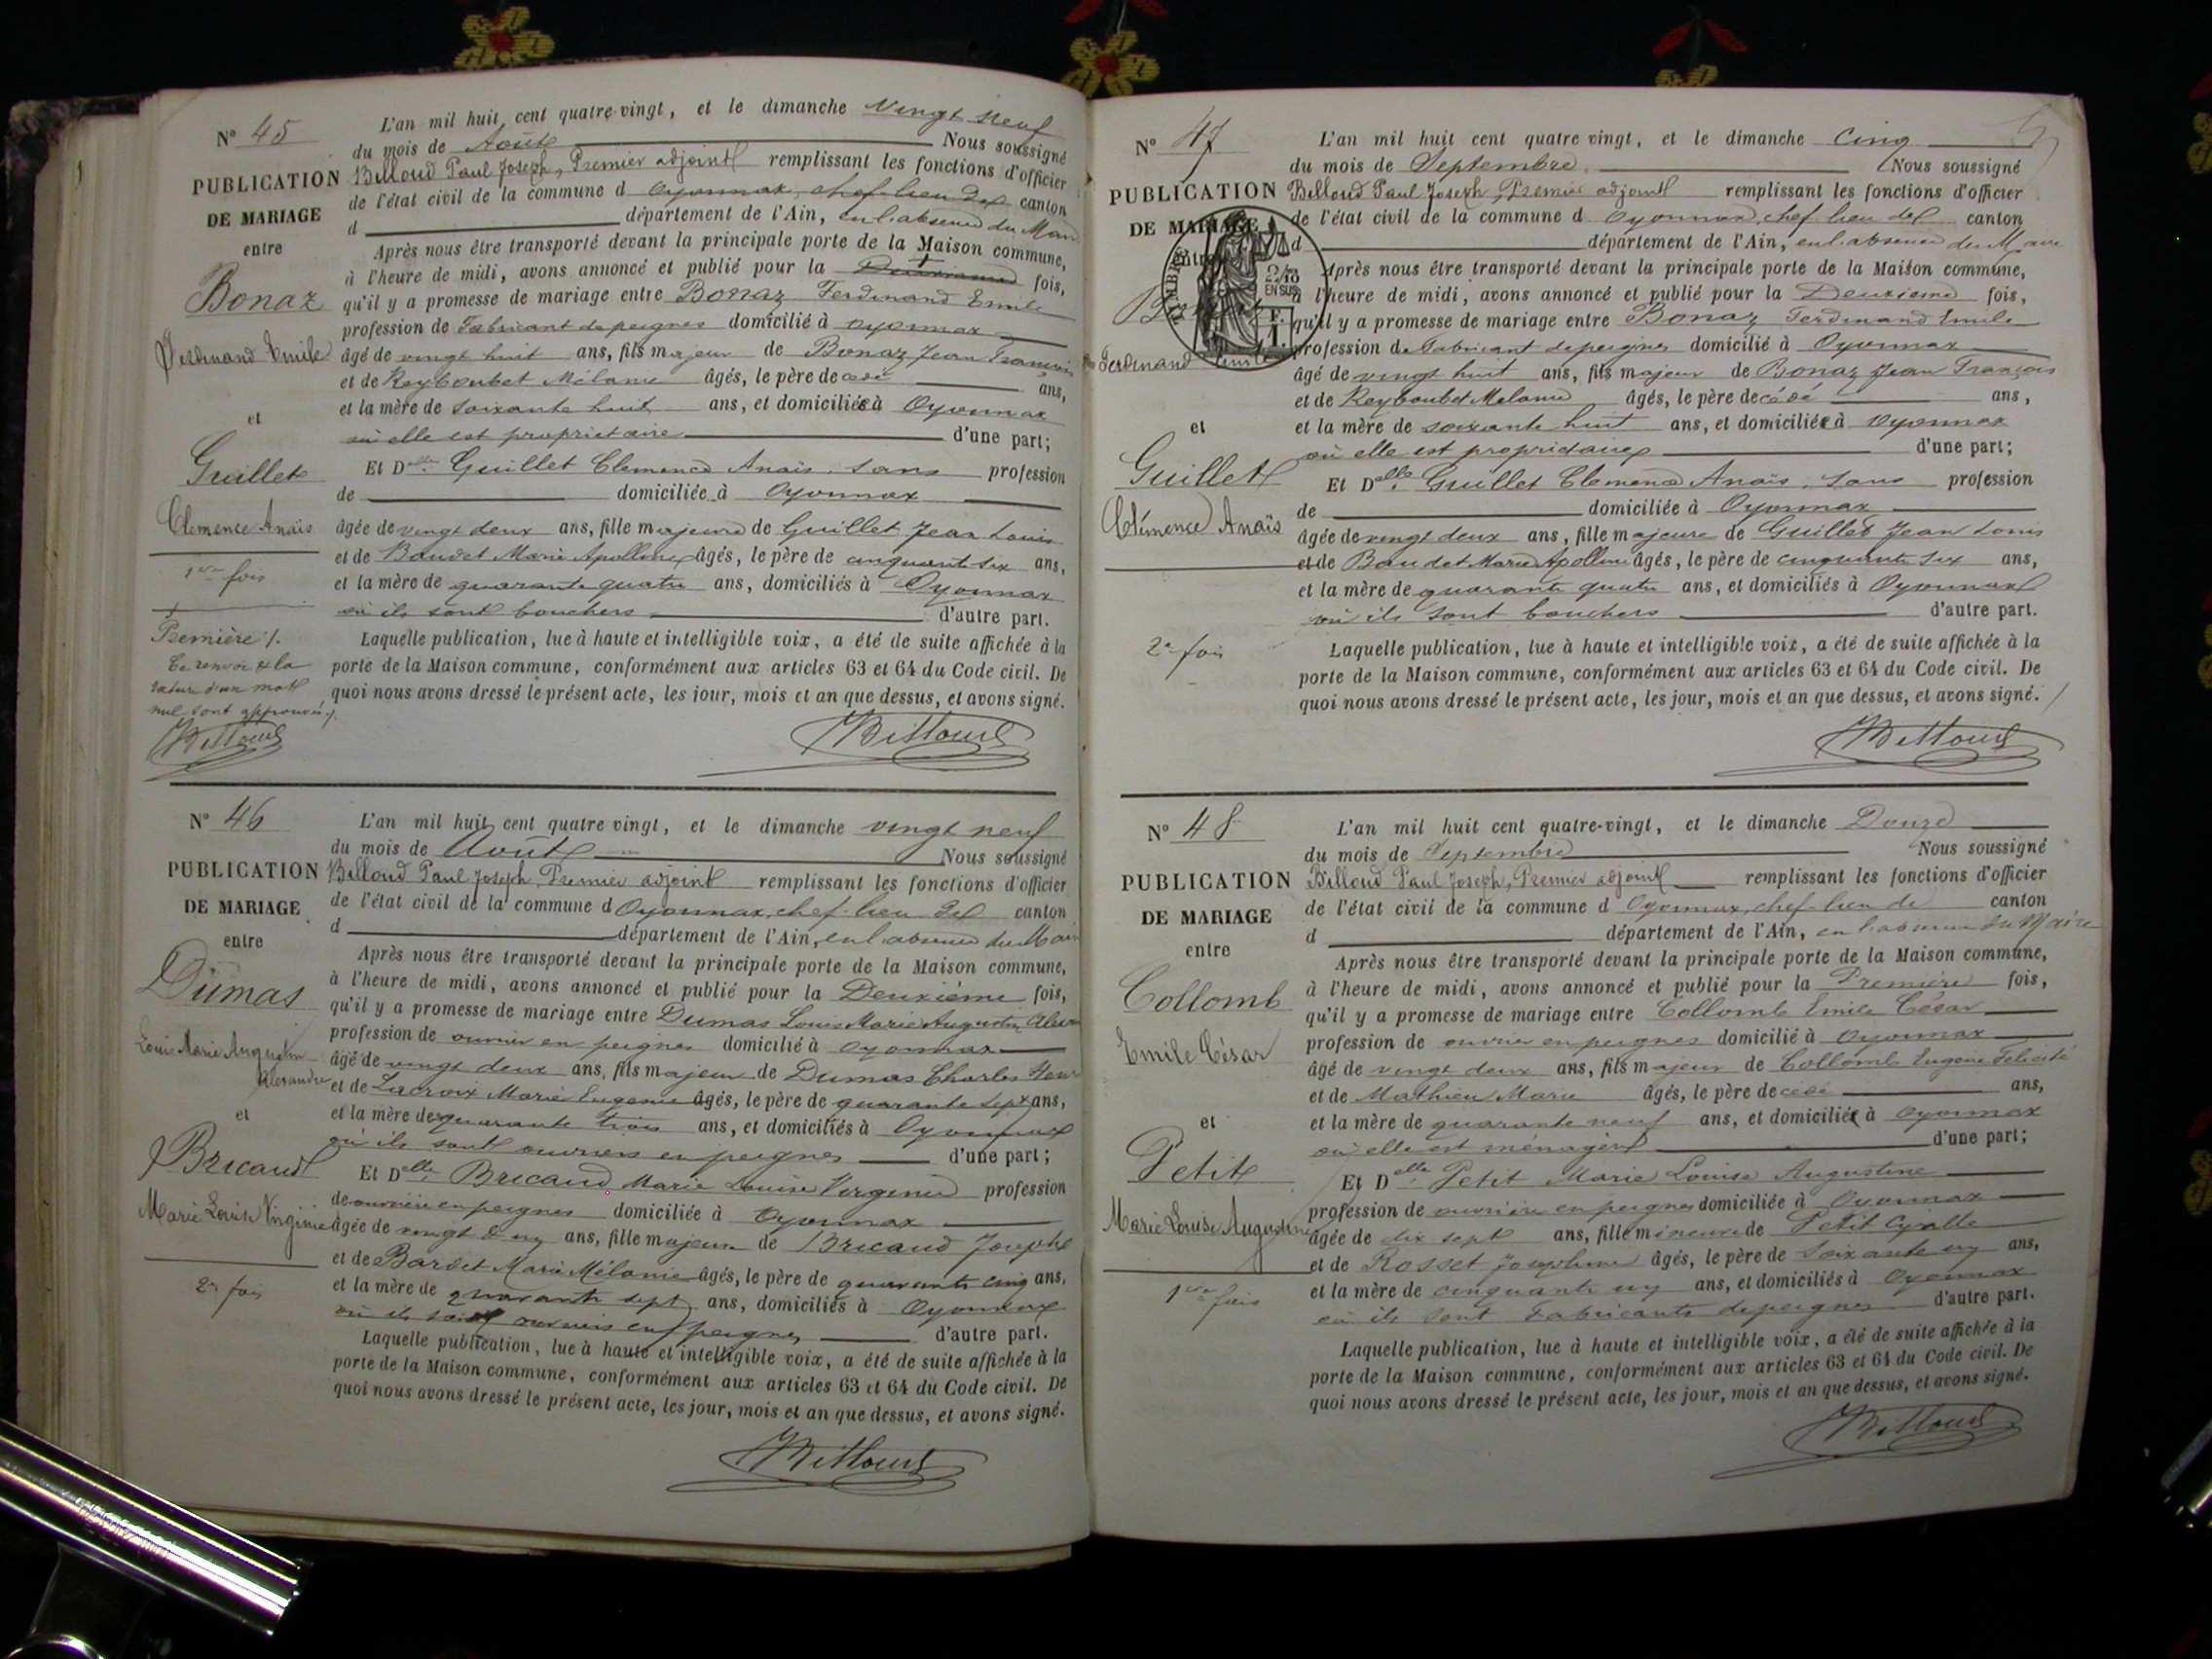 N° 45
PUBLICATION
DE MARIAGE
entre
Bonaz
Ferdinand Emile
et
Guillet
Clemence Anaïs
1ère fois
Première /.
Ce renvoi & la
rature d'un mot
nul sont approuvés /.
Billoud
L'an mil huit cent quatre-vingt, et le dimanche vingt neuf
du mois de Août Nous soussigné
Billoud Paul Joseph, Premier adjoint remplissant les fonctions d'officier
de l'état civil de la commune d Oyonnax, chef lieu del canton
d département de l'Ain, en l'absence du Maire
Après nous être transporté devant la principale porte de la Maison commune,
à l'heure de midi, avons annoncé et publié pour la fois,
qu'il y a promesse de mariage entre Bonaz Ferdinand Emile
profession de Fabricant de peignes domicilié à Oyonnax
âgé de vingt huit ans, fils majeur de Bonaz Jean François
et de Reyboubet Mélanie âgés, le père décédé ans,
et la mère de soixante huit ans, et domiciliée à Oyonnax
où elle est propriétaire d'une part;
Et Delle Guillet Clemence Anaïs, sans profession
de domiciliée à Oyonnax
âgée de vingt deux ans, fille majeure de Guillet Jean Louis
et de Baudet Marie Apolline âgés, le père de cinquante six ans,
et la mère de quarante quatre ans, domiciliés à Oyonnax
où ils sont bouchers d'autre part.
Laquelle publication, lue à haute et intelligible voix, a été de suite affichée à la
porte de la Maison commune, conformément aux articles 63 et 64 du Code civil. De
quoi nous avons dressé le présent acte, les jour, mois et an que dessus, et avons signé.
Billoud
N° 46
PUBLICATION
DE MARIAGE
entre
Dumas
Louis Marie Augustin
Alexandre
et
Bricaud
Marie Louise Virginie
2e fois
L'an mil huit cent quatre vingt, et le dimanche vingt neuf
du mois de Août Nous soussigné
Billoud Paul Joseph, Premier adjoint remplissant les fonctions d'officier
de l'état civil de la commune d Oyonnax, chef-lieu del canton
d département de l'Ain, en l'absence du Maire
Après nous être transporté devant la principale porte de la Maison commune,
à l'heure de midi, avons annoncé et publié pour la Deuxième fois,
qu'il y a promesse de mariage entre Dumas Louis Marie Augustin
profession de ouvrier en peignes domicilié à Oyonnax
âgé de vingt deux ans, fils majeur de Dumas Charles
et de Lacroix Marie Eugenie âgés, le père de quarante sept ans,
et la mère de quarante trois ans, et domiciliés à Oyonnax
où ils sont ouvriers en peignes d'une part;
Et Delle Bricaud Marie Louise Virginie profession
de ouvrière en peignes domiciliée à Oyonnax
âgée de vingt & un ans, fille majeure de Bricaud Joseph
et de Bardet Marie Mélanie âgés, le père de quarante cinq ans,
et la mère de quarante sept ans, domiciliés à Oyonnax
où ils sont ouvriers en peignes d'autre part.
Laquelle publication, lue à haute et intelligible voix, a été de suite affichée à la
porte de la Maison commune, conformément aux articles 63 et 64 du Code civil. De
quoi nous avons dressé le présent acte, les jour, mois et an que dessus, et avons signé.
Billoud
5
N° 47
PUBLICATION
DE MARIAGE
entre
TIMBRE
2/10
EN SUS
Ferdinand
et
Guillet
Clémence Anaïs
2e fois
L'an mil huit cent quatre vingt, et le dimanche cinq
du mois de Septembre Nous soussigné
Billoud Paul Joseph, Premier adjoint remplissant les fonctions d'officier
de l'état civil de la commune d Oyonnax, chef lieu del canton
d département de l'Ain, en l'absence du Maire
Après nous être transporté devant la principale porte de la Maison commune,
à l'heure de midi, avons annoncé et publié pour la Deuxième fois,
qu'il y a promesse de mariage entre Bonaz Ferdinand Emile
profession de Fabricant de peignes domicilié à Oyonnax
âgé de vingt huit ans, fils majeur de Bonaz Jean François
et de Reyboubet Melanie âgés, le père décédé ans,
et la mère de soixante huit ans, et domiciliée à Oyonnax
où elle est propriétaire d'une part;
Et Delle Guillet Clemence Anaïs, sans profession
de domiciliée à Oyonnax
âgée de vingt deux ans, fille majeure de Guillet Jean Louis
et de Baudet Marie Apolline âgés, le père de cinquante six ans,
et la mère de quarante quatre ans, et domiciliés à Oyonnax
où ils sont bouchers d'autre part.
Laquelle publication, lue à haute et intelligible voix, a été de suite affichée à la
porte de la Maison commune, conformément aux articles 63 et 64 du Code civil. De
quoi nous avons dressé le présent acte, les jour, mois et an que dessus, et avons signé.
Billoud
N° 48
PUBLICATION
DE MARIAGE
entre
Collomb
Emile César
et
Petit
Marie Louise Augustine
1ère fois
L'an mil huit cent quatre-vingt, et le dimanche Douze
du mois de Septembre Nous soussigné
Billoud Paul Joseph, Premier adjoint remplissant les fonctions d'officier
de l'état civil de la commune d Oyonnax, chef-lieu de canton
d département de l'Ain, en l'absence du Maire
Après nous être transporté devant la principale porte de la Maison commune,
à l'heure de midi, avons annoncé et publié pour la Première fois,
qu'il y a promesse de mariage entre Collomb Emile César
profession de ouvrier en peignes domicilié à Oyonnax
âgé de vingt deux ans, fils majeur de Collomb Eugene Félicité
et de Mathieu Marie âgés, le père décédé ans,
et la mère de quarante neuf ans, et domiciliée à Oyonnax
où elle est ménagère d'une part;
Et Delle Petit Marie Louise Augustine
profession de ouvrière en peignes domiciliée à Oyonnax
âgée de dix sept ans, fille mineure de Petit
et de Rosset Josephine âgés, le père de soixante un ans,
et la mère de cinquante un ans, et domiciliés à Oyonnax
où ils sont Fabricants de peignes d'autre part.
Laquelle publication, lue à haute et intelligible voix, a été de suite affichée à la
porte de la Maison commune, conformément aux articles 63 et 64 du Code civil. De
quoi nous avons dressé le présent acte, les jour, mois et an que dessus, et avons signé.
Billoud